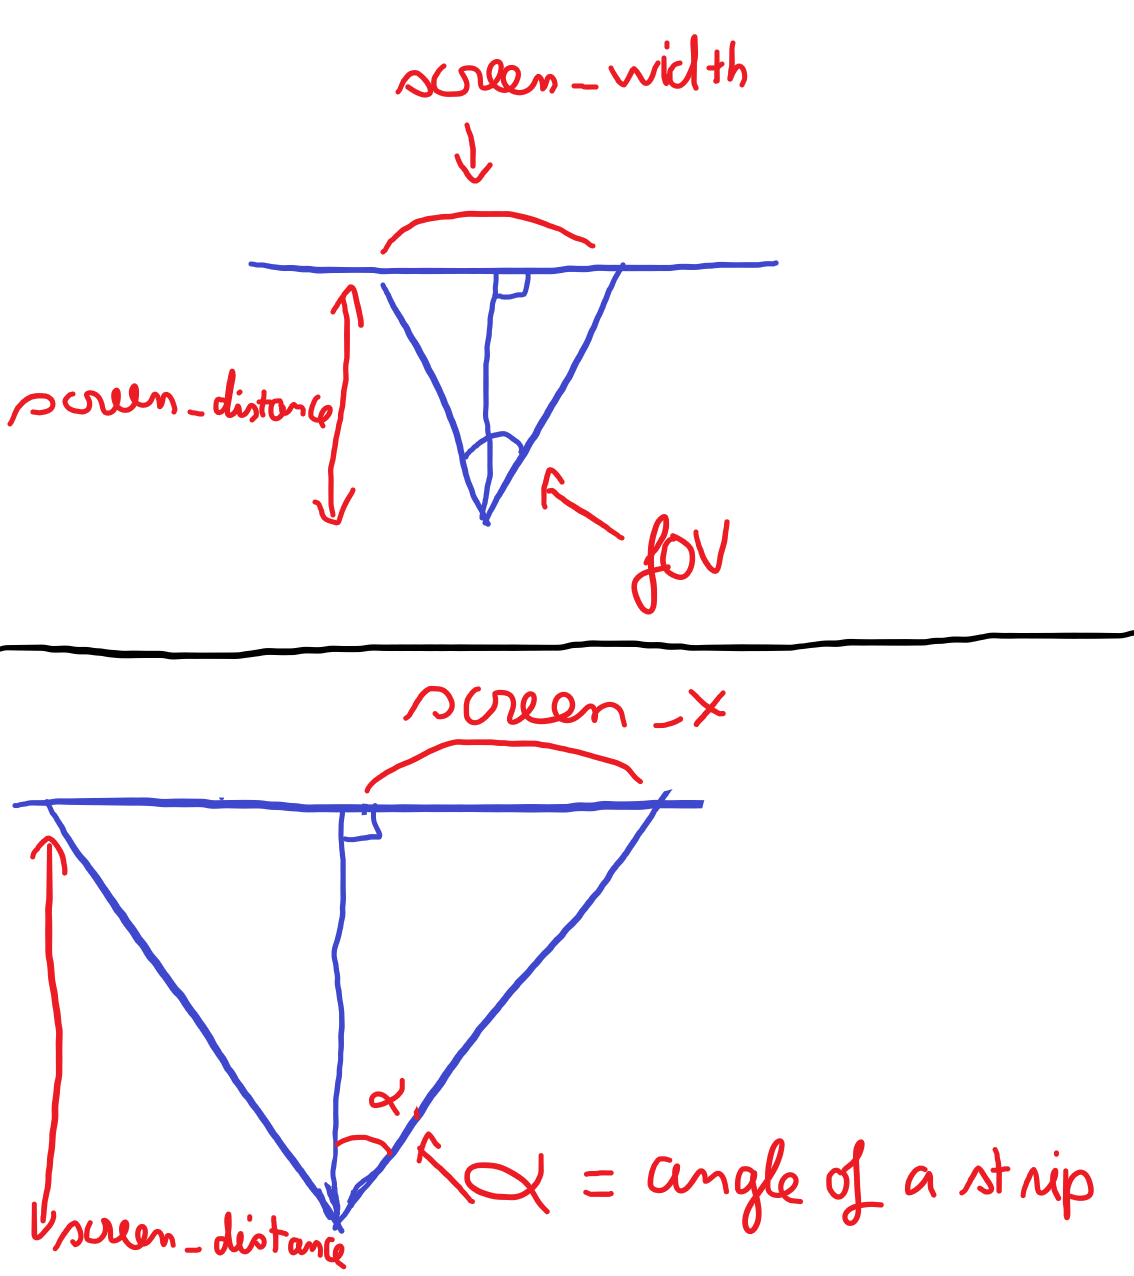 screen_width
screen_distance
fov
screen_x
α
α = angle of a strip
screen_distance